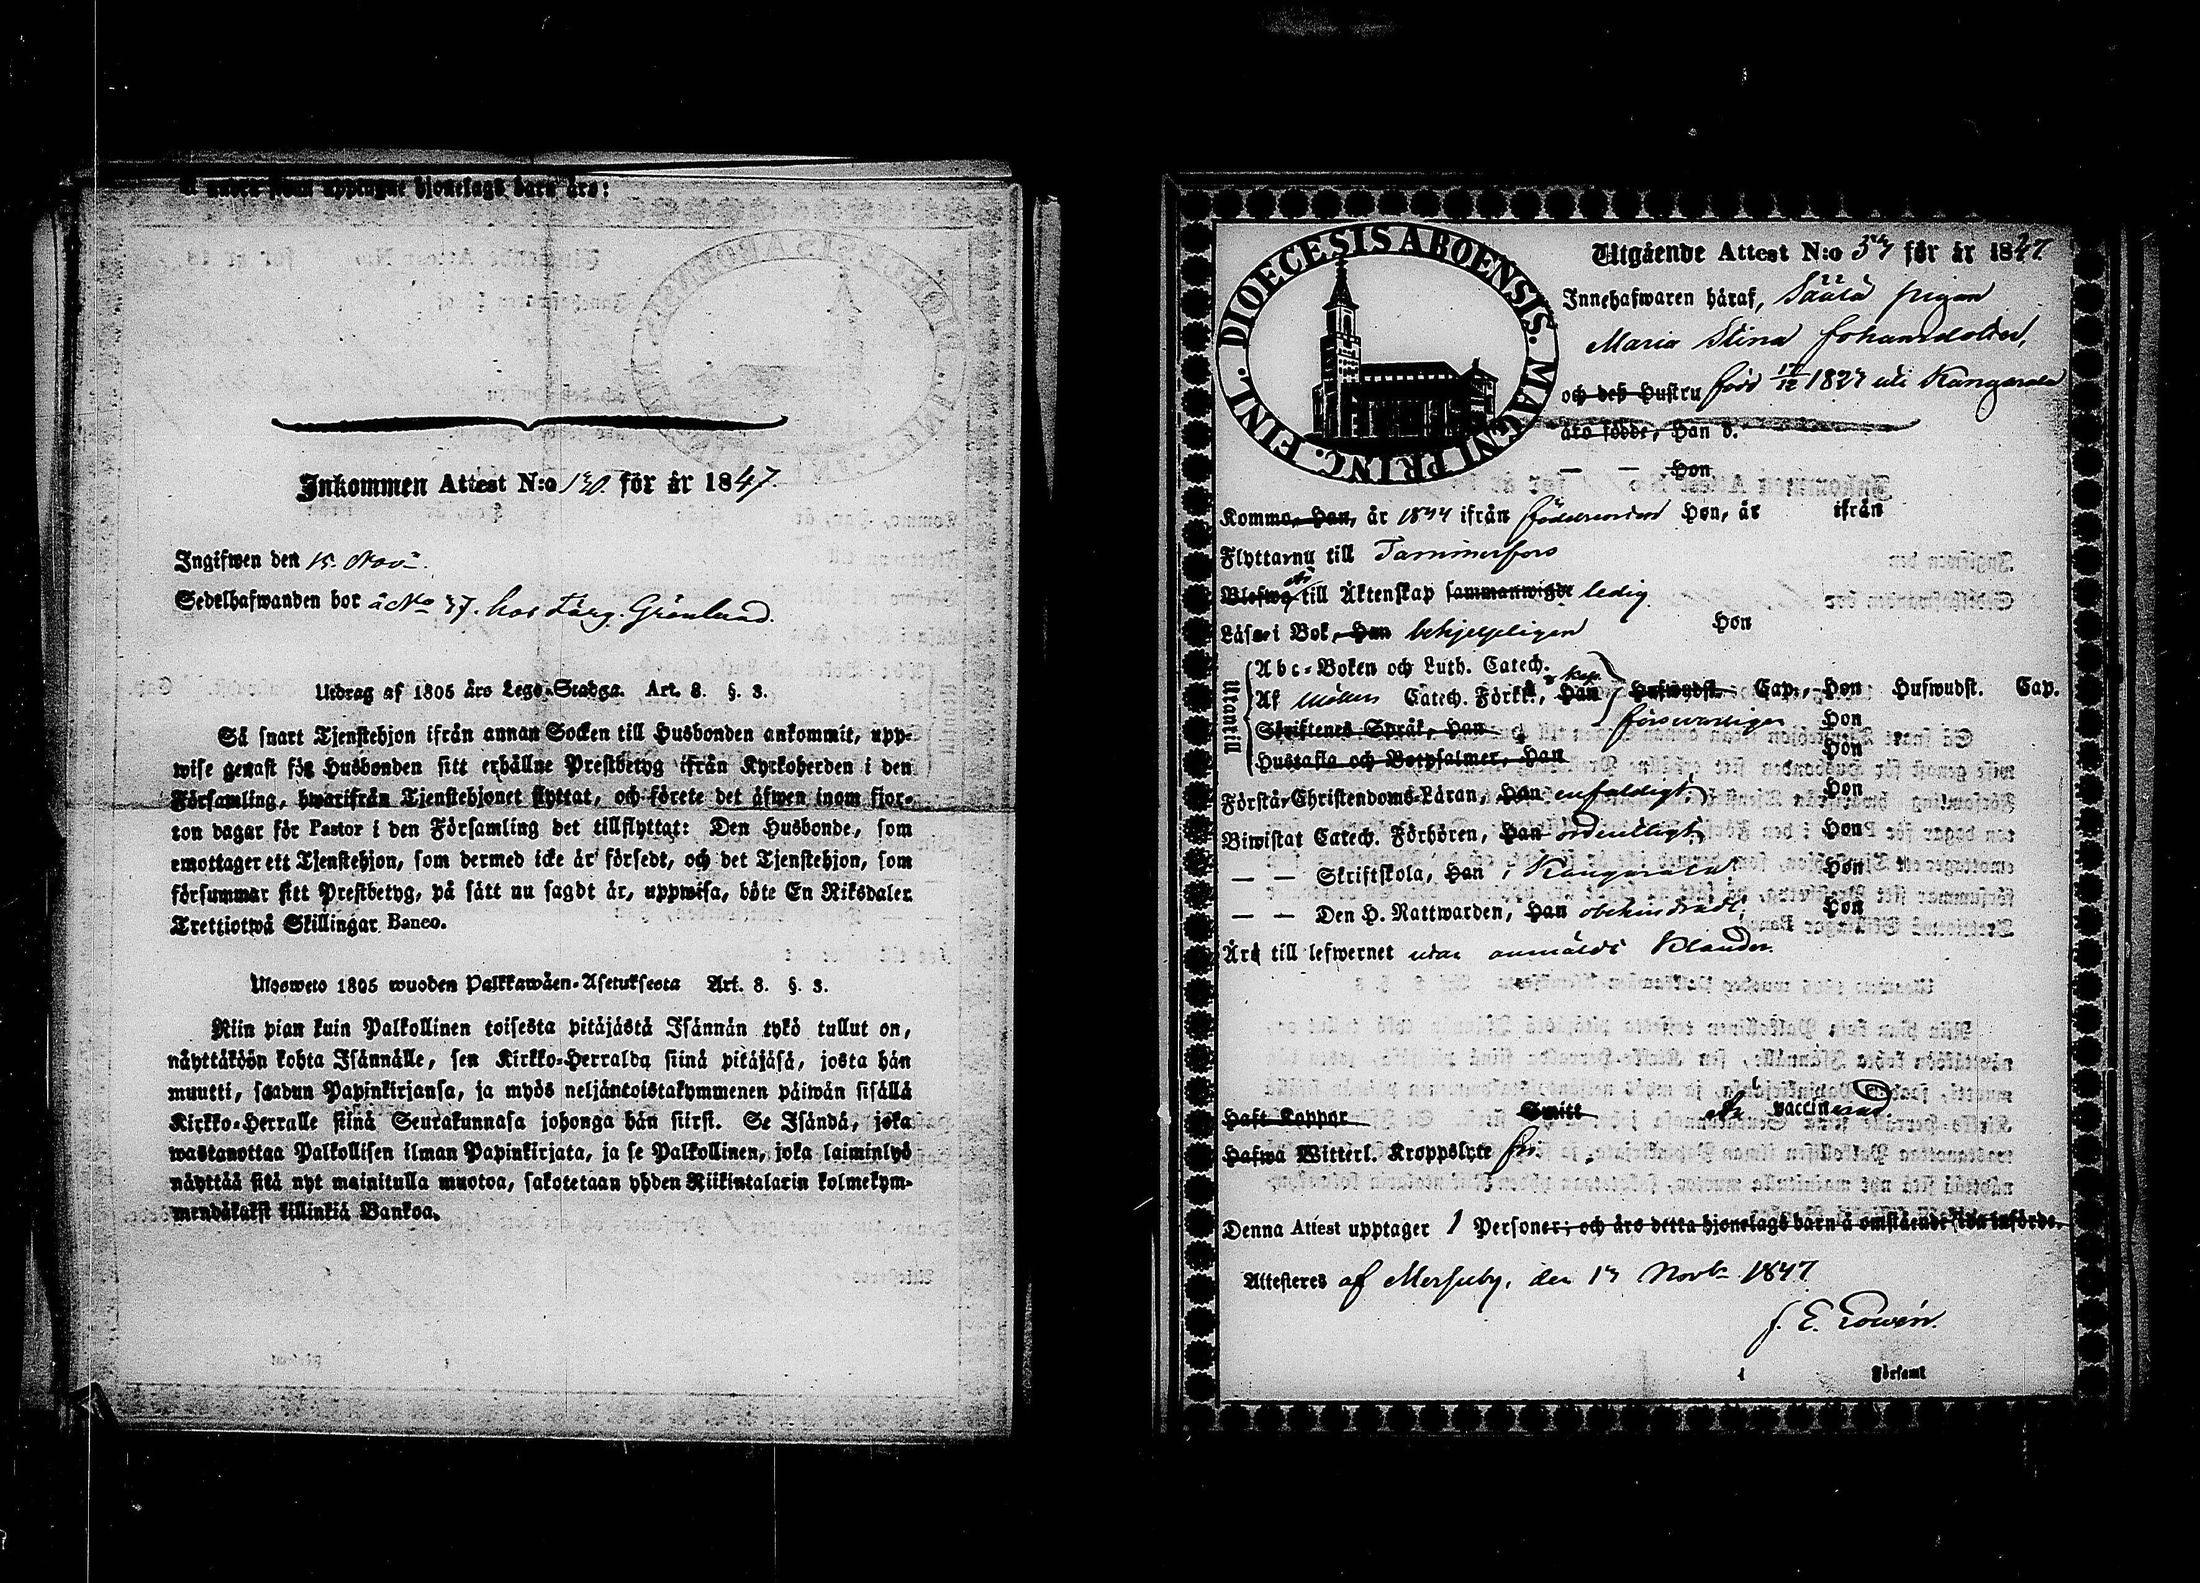 å andra sidan upptagne hjonelags barn äro:
Inkommen Attest N:o 130. för år 1847.
Ingifwen den 15. Nov:
Sedelhafwanden bor å No 37. hos Färg. Grönlund.
Utdrag af 1805 års Lego-Stadga. Art. 8. §. 3.
Så snart Tjenstehjon ifrån annan Socken till Husbonden ankommit, upp-
wise genast för Husbonden sitt erhållne Prestbetyg ifrån Kyrkoherden i den
Församling, hwarifrån Tjenstehjonet flyttat, och förete det äfwen inom fjor-
ton dagar för Pastor i den Församling det tillflyttat: Den Husbonde, som
emottager ett Tjenstehjon, som dermed icke är försedt, och det Tjenstehjon, som
försummar sitt Prestbetyg, på sätt nu sagdt är, uppwisa, böte En Riksdaler
Trettiotwå Skillingar Banco.
Ulosweto 1805 wuoden Palkkawäen-Asetuksesta Art. 8. §. 3.
Niin pian kuin Palkollinen toisesta pitäjästä Isännän tykö tullut on,
näyttäköön kohta Isännälle, sen Kirkko-Herralda siinä pitäjäsä, josta hän
muutti, saadun Papinkirjansa, ja myös neljäntoistakymmenen päiwän sisällä
Kirkko-Herralle siinä Seurakunnasa johonga hän siirst. Se Isändä, joka
wastanottaa Palkollisen ilman Papinkirjata, ja se Palkollinen, joka laiminlyö
näyttää sitä nyt mainitulla muotoa, sakotetaan yhden Riikintalarin kolmekym-
mendäkaksi killinkiä Bankoa.
DIOECESIS ABOENSIS. MAGNI PRINC. FINL.
Utgående Attest N:o 57 för år 1847
Innehafwaren häraf, Säälä pigan
Maria Stina Johansdotter,
och deß Hustru född 17/12 1827 uti Kangasala
äro födde, Han d.
— — Hon
Kommo, Han, år 1844 ifrån födelseorten Hon, år ifrån
Flyttar nu till Tammerfors
Blefwo till Äktenskap sammanwigde ledig
Läser i Bok, Han behjelpligen Hon
Utantill
Abc-Boken och Luth. Catech.
Af Möllers Catech. Förkl., Han Kap. Hufwudst. Cap., Hon Hufwudst. Cap.
Skriftenes Språk, Han försvarligen Hon
Hustafla och Botpsalmer, Han Hon
Förstår Christendoms-Läran, Han enfaldigt Hon
Biwistat Catech. Förhören, Han ordentligt, Hon
— — Skriftskola, Han i Kangasala Hon
— — Den H. Nattwarden, Han obehindradt, Hon
Äro till lefwernet utan anmäldt klander.
Haft Koppor Smitt Är vaccinerad.
Hafwa Witterl. Kroppslyte fri.
Denna Attest upptager 1 Personer; och äro detta hjonelags barn å omstående sida införde.
Attesteres af Mersuby, den 13 Novbr 1847.
J. E. Rowén.
i Församl